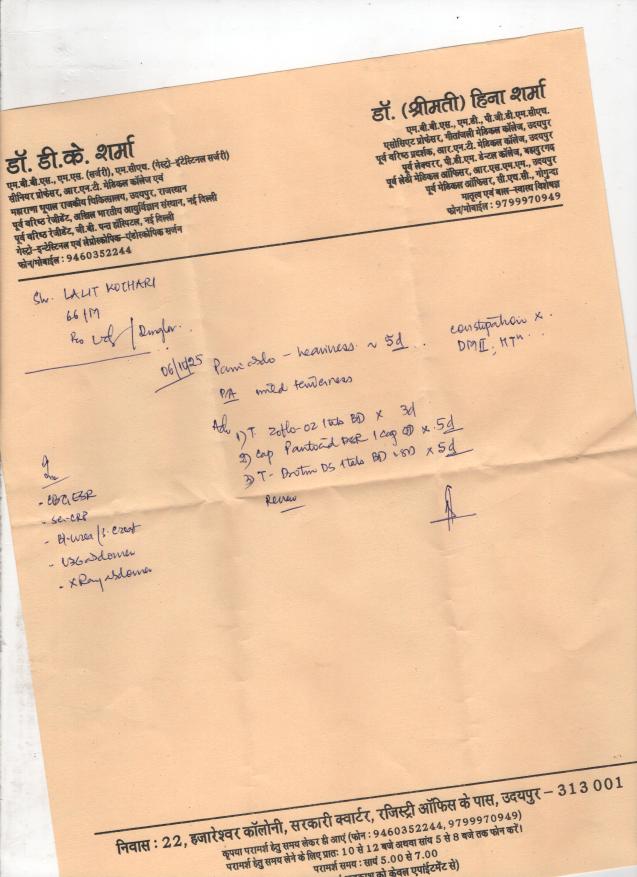 डॉ. डी.के. शर्मा
एम.बी.बी.एस., एम.एस. (सर्जरी), एम.सीएच. (गेस्ट्रो-इंटेस्टिनल सर्जरी)
सीनियर प्रोफेसर, आर.एन.टी. मेडिकल कॉलेज एवं
महाराणा भूपाल राजकीय चिकित्सालय, उदयपुर, राजस्थान
पूर्व वरिष्ठ रेजीडेंट, अखिल भारतीय आयुर्विज्ञान संस्थान, नई दिल्ली
पूर्व वरिष्ठ रेजीडेंट, जी.बी. पन्त हॉस्पिटल, नई दिल्ली
गेस्ट्रो-इन्टेस्टिनल एवं लेप्रोस्कोपिक-एंडोस्कोपिक सर्जन
फोन/मोबाईल : 9460352244
डॉ. (श्रीमती) हिना शर्मा
एम.बी.बी.एस., एम.डी., पी.जी.डी.एम.सीएच.
एसोसिएट प्रोफेसर, गीतांजली मेडिकल कॉलेज, उदयपुर
पूर्व वरिष्ठ प्रदर्शक, आर.एन.टी. मेडिकल कॉलेज, उदयपुर
पूर्व लेक्चरर, पी.डी.एम. डेन्टल कॉलेज, बहादुरगढ़
पूर्व लेडी मेडिकल ऑफिसर, आर.एस.एम.एम., उदयपुर
पूर्व मेडिकल ऑफिसर, सी.एच.सी., गोगुन्दा
मातृत्व एवं बाल-स्वास्थ्य विशेषज्ञ
फोन/मोबाईल : 9799970949
Sh. LALIT KOTHARI
66/M
06/10/25
heaviness ~ 5d
constipation x
DM II, HTN
P/A mild tenderness
Adv 1) T. Zoflo-OZ 1 tab BD x 3d
2) Cap Pantocid DSR 1 cap OD x 5d
3) T- DS 1 tab BD x 5d
Review
- CBC, ESR
- Se. CRP
- Bl. urea / S. Creat
- USG abdomen
- X Ray abdomen
निवास : 22, हजारेश्वर कॉलोनी, सरकारी क्वार्टर, रजिस्ट्री ऑफिस के पास, उदयपुर - 313 001
कृपया परामर्श हेतु समय लेकर ही आएं (फोन : 9460352244, 9799970949)
परामर्श हेतु समय लेने के लिए प्रातः 10 से 12 बजे अथवा सांय 5 से 8 बजे तक फोन करें।
परामर्श समय : सायं 5.00 से 7.00
को केवल एपाईंटमेंट से)